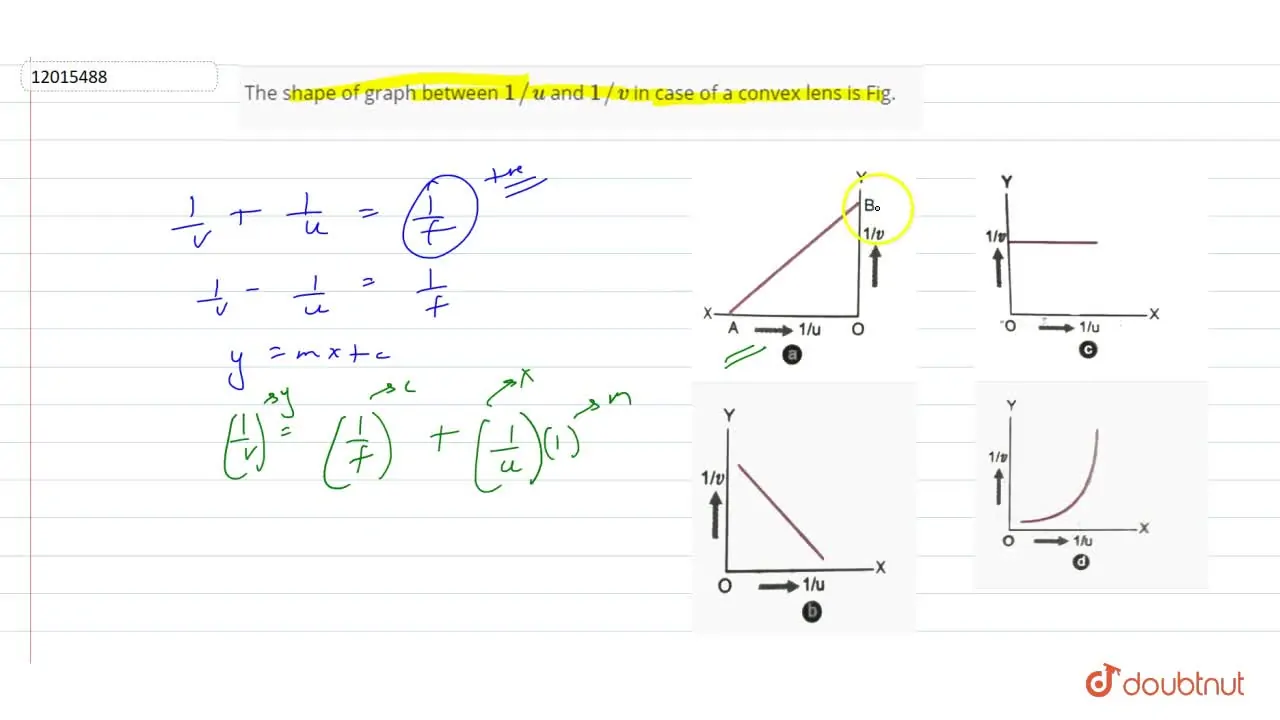 12015488
The shape of graph between 1/u and 1/v in case of a convex lens is Fig.
1/v + 1/u = 1/f +ve
1/v - 1/u = 1/f
y = mx+c
(1/v) = (1/f) + (1/u)(1)
y c x m
Y
B
1/v
X A 1/u O
a
Y
1/v
O 1/u X
c
Y
1/v
O 1/u X
b
Y
1/v
O 1/u X
d
doubtnut